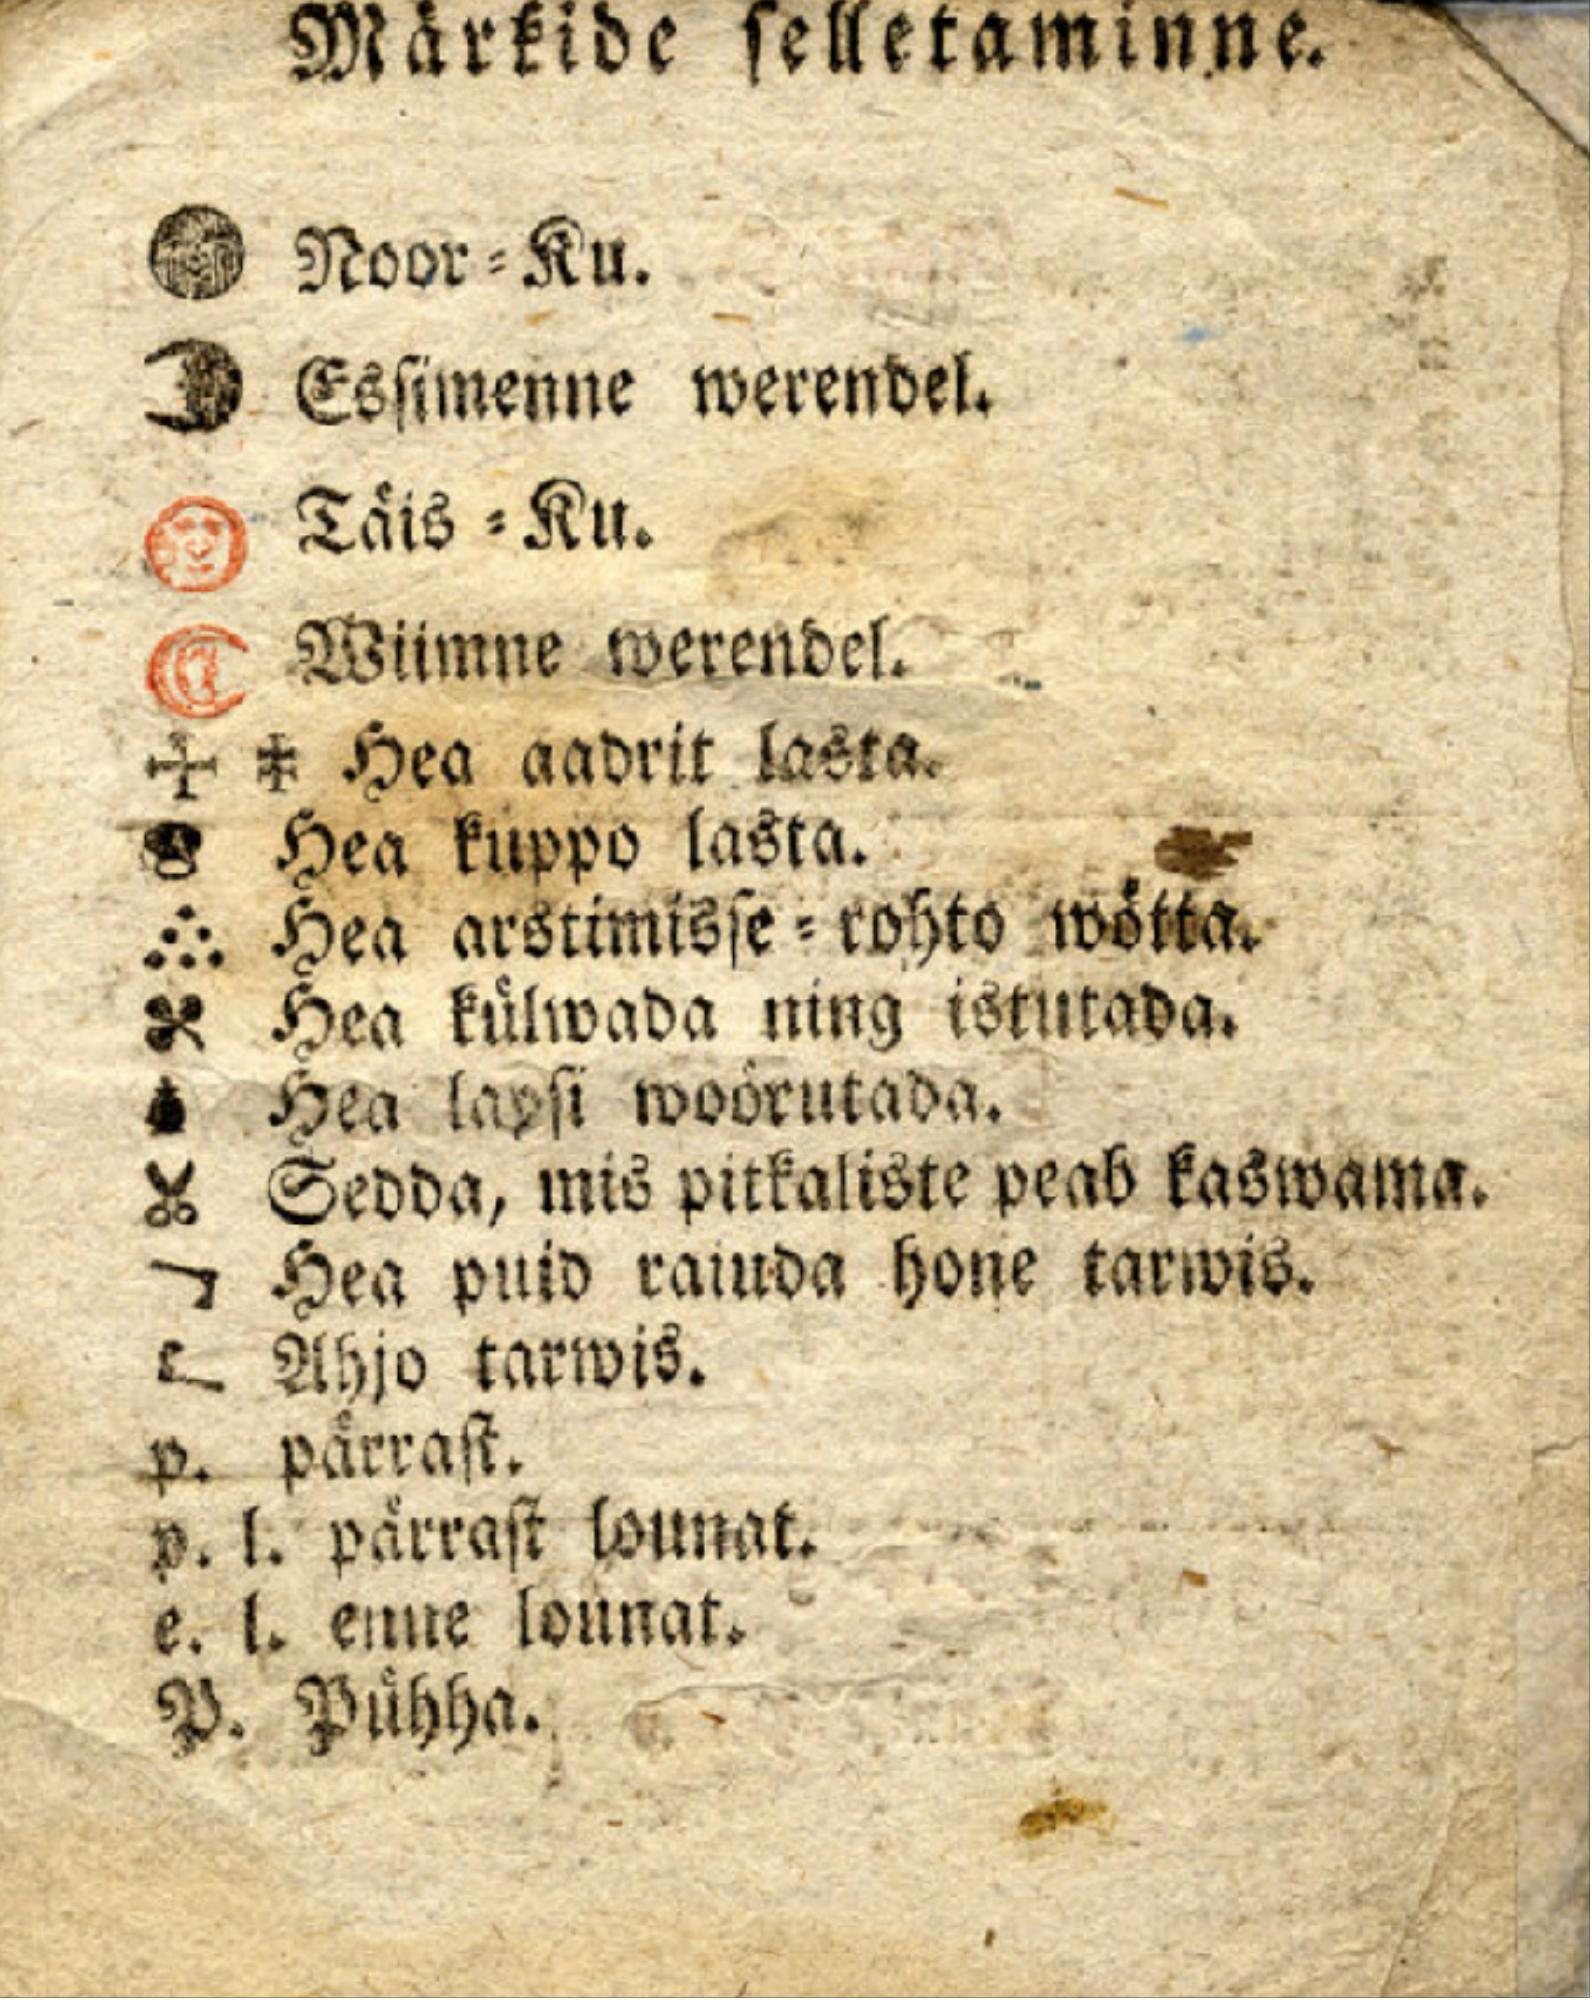 Märkide selletaminne.
Noor-Ku.
Essimenne werendel.
Täis-Ku.
Wiimne werendel.
Hea aadrit lasta.
Hea kuppo lasta.
Hea arstimisse-rohto wötta.
Hea külwada ning istutada.
Hea lapsi woörutada.
Sedda, mis pitkaliste peab kaswama.
Hea puid raiuda hone tarwis.
Ahjo tarwis.
p. pärrast.
p. l. pärrast lounat.
e. l. enne lounat.
P. Pühha.